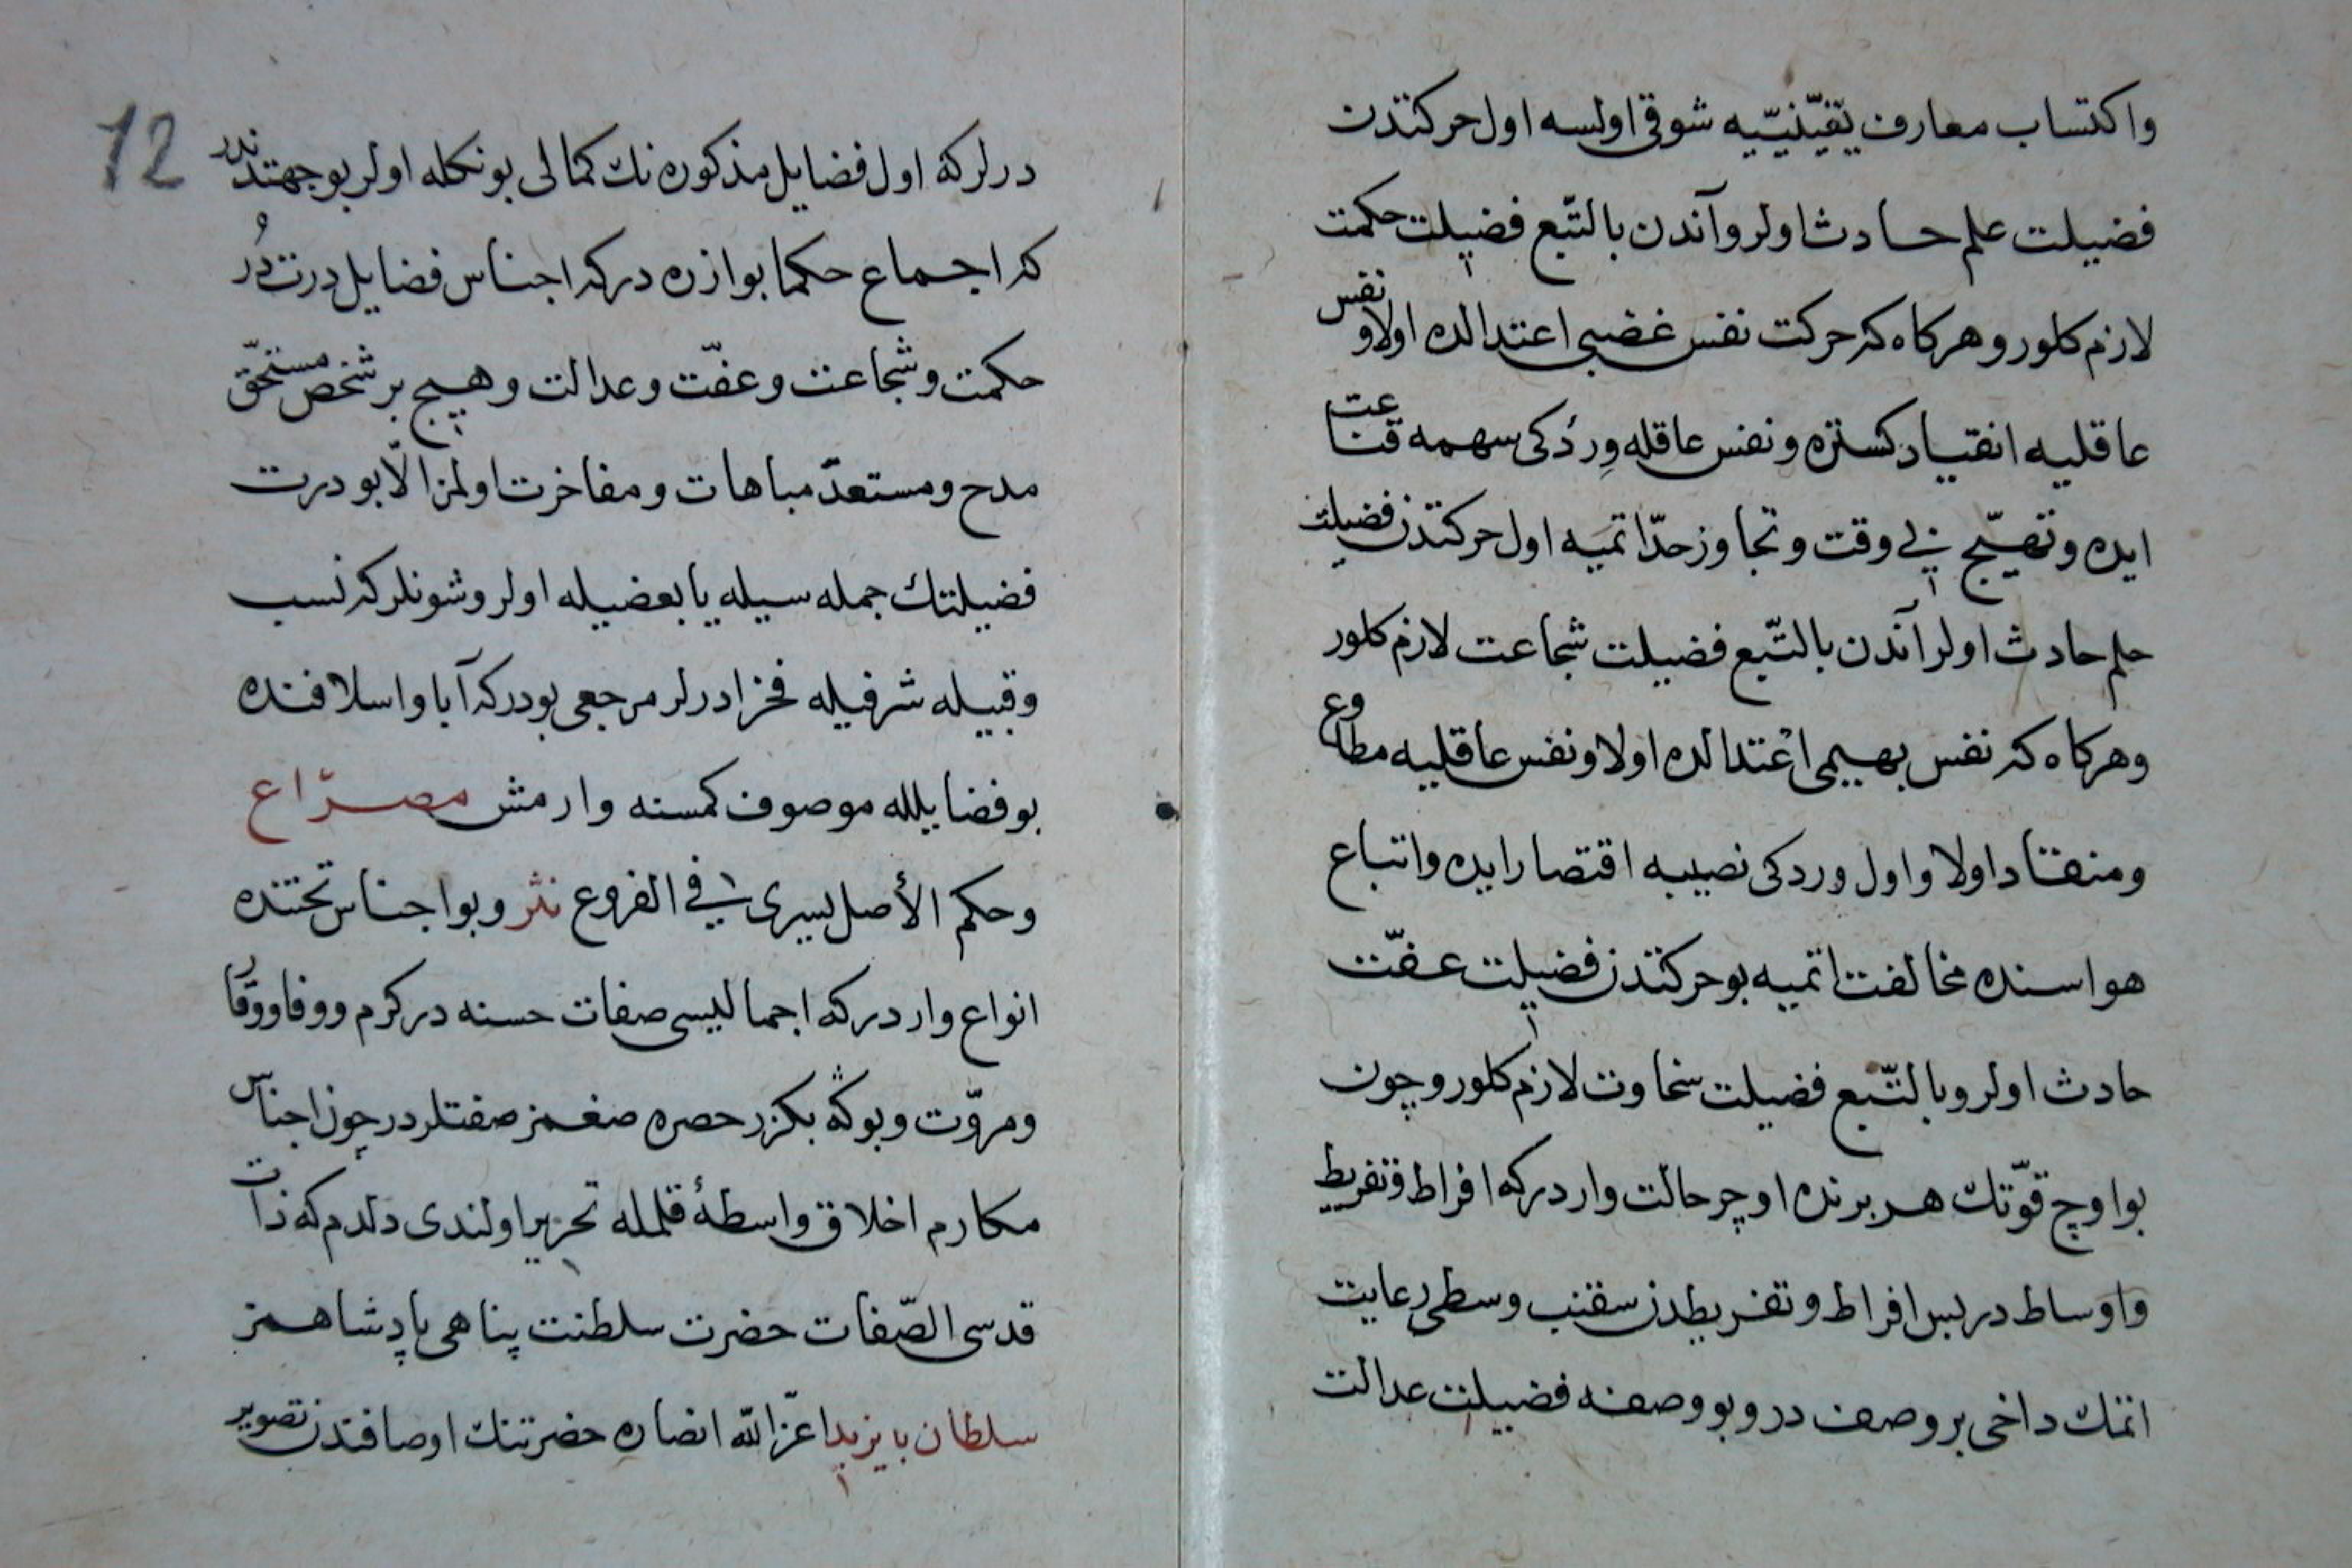 واكتساب معارف يقينيّيه شوقى اولسه اول حركتدن
فضيلت علم حادث اولر وآندن بالتّبع فضيلت حكمت
لازم كلور و هركاه كه حركت نفس غضبى اعتدالده اولا و نفس
عاقليه انقياد كستره و نفس عاقله وردكى سهمه قناعت
ايده و تهيّج بى وقت و تجاوز حدّ اتميه اول حركتدن فضيلت
حلم حادث اولر آندن بالتّبع فضيلت شجاعت لازم كلور
و هركاه كه نفس بهيمى اعتدالده اولا و نفس عاقليه مطاوع
و منقاد اولا و اول وردكى نصيبه اقتصار ايده و اتباع
هواسنده مخالفت اتميه بو حركتدن فضيلت عفّت
حادث اولر و بالتّبع فضيلت سخاوت لازم كلور و چون
بو اوچ قوّتك هر برنده اوچر حالت واردر كه افراط و تفريط
و اوساطدر بس افراط و تفريطدن سقنب وسطى رعايت
اتمك داخى بر وصف در و بو وصفه فضيلت عدالت
12
درلر كه اول فضايل مذكوره نك كمالى بونكله اولر بو جهتدندر
كه اجماع حكما بو ازره در كه اجناس فضايل درت در
حكمت و شجاعت و عفّت و عدالت و هيچ بر شخص مستحقّ
مدح و مستعدّ مباهات و مفاخرت اولمز الّا بو درت
فضيلتك جمله سيله يا بعضيله اولر و شونلر كه نسب
و قبيله شرفيله فخر ادرلر مرجعى بودر كه آبا و اسلافنده
بو فضايلله موصوف كمسنه وارمش مصراع
و حكم الأصل يسرى فى الفروع نثر و بو اجناس تحتنده
انواع واردر كه اجماليسى صفات حسنه در كرم و وفا و وقار
و مروّت و بوكه بكزر حصره صغمز صفتلردر چون اجناس
مكارم اخلاق واسطهٔ قلمله تحرير اولندى دلدم كه ذات
قدسى الصّفات حضرت سلطنت پناهى پادشاهمز
سلطان بايزيد اعزّ الله انصاره حضرتنك اوصافندن تصوير